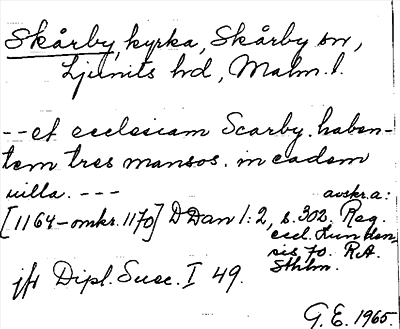 Skårby, kyrka, Skårby sn,
Ljunits hd, Malm. l.
-- et ecclesiam Scarby. haben-
tem tres mansos. in eadem
uilla. ---
avskr. a:
[1164-omkr. 1170] DDan 1:2, s. 302. Reg.
eccl. Lunden-
sis, fo. R.A.
Sthlm.
jfr Dipl. Suec. I 49.
G.E. 1965.